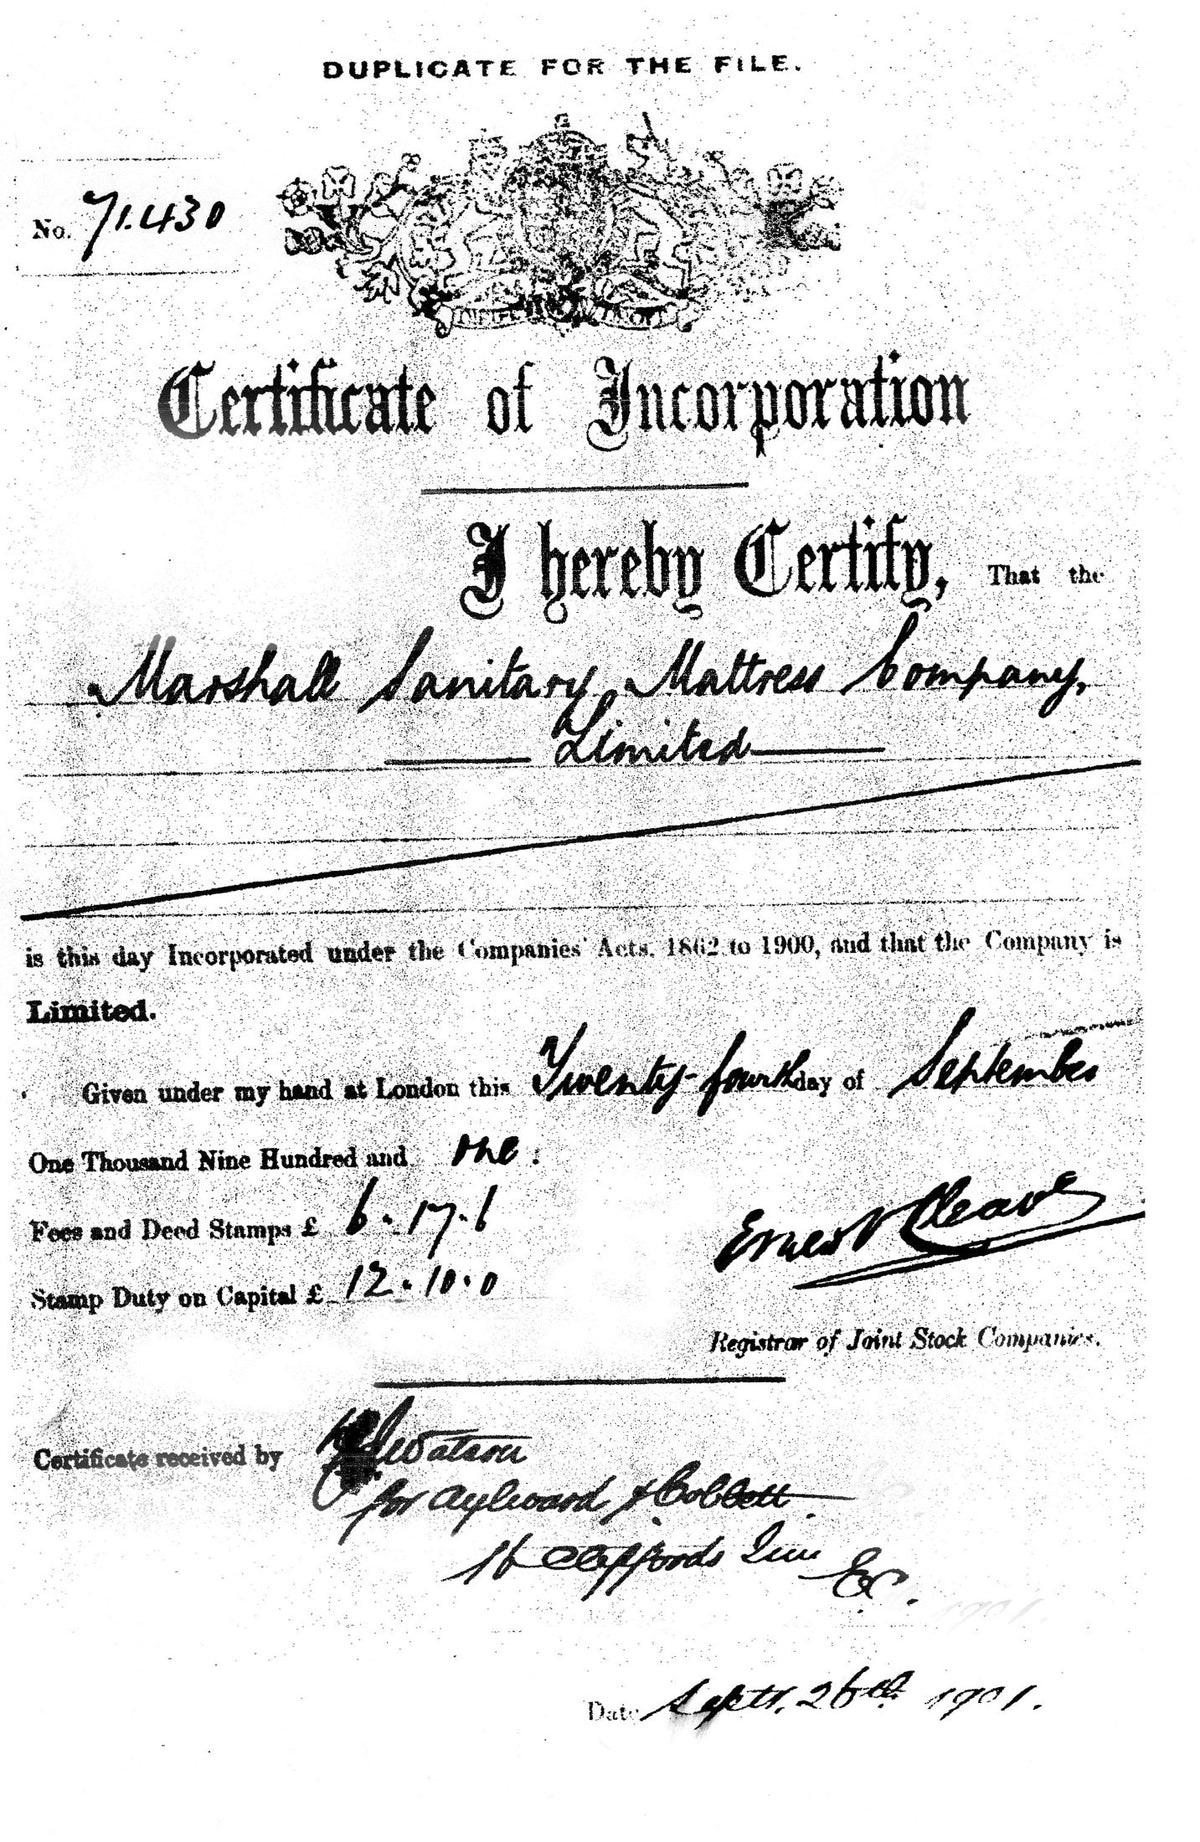 DUPLICATE FOR THE FILE.
No. 71.430
Certificate of Incorporation
I hereby Certify, That the
Marshall Sanitary Mattress Company,
Limited
is this day Incorporated under the Companies' Acts, 1862 to 1900, and that the Company is
Limited.
Given under my hand at London this Twenty-fourth day of September
One Thousand Nine Hundred and one.
Fees and Deed Stamps £ 6.17.6
Stamp Duty on Capital £ 12.10.0
Ernest Cleave
Registrar of Joint Stock Companies.
Certificate received by Watson
for Aylward & Cobbett
16 Cliffords Inn
EC.
Date Sept. 26th 1901.